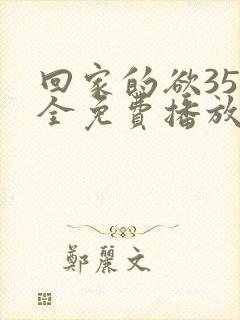 回家的欲35
全免费播放
鄭麗文